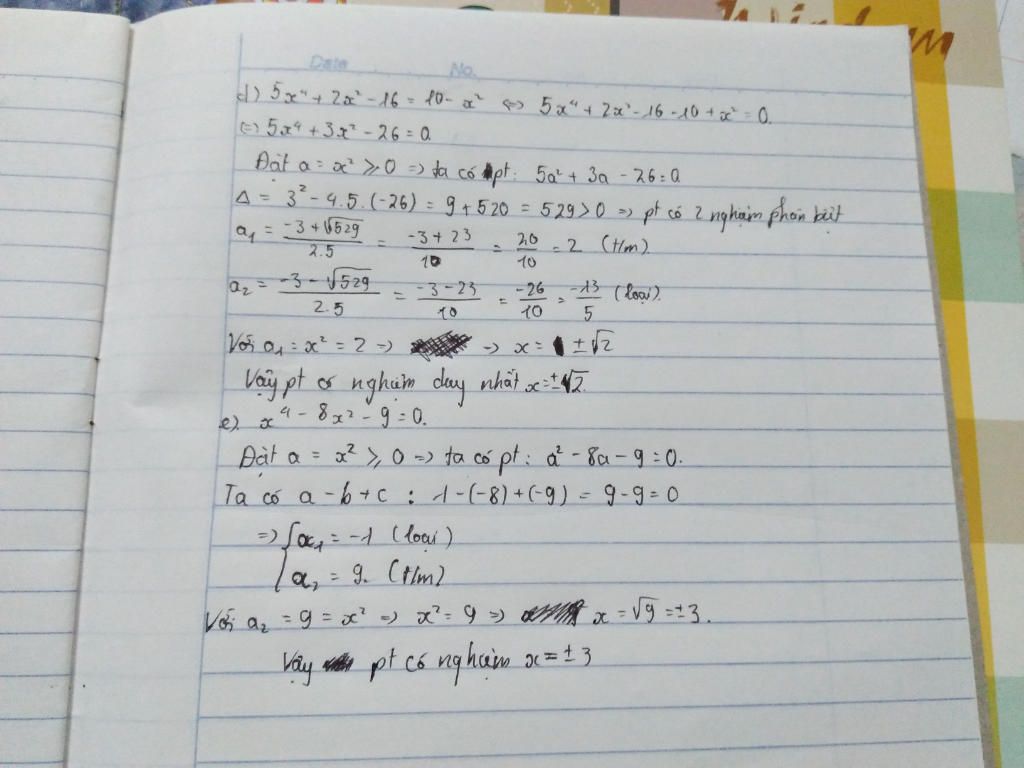 Date No.
d) 5x⁴ + 2x² - 16 = 10 - x² ⇔ 5x⁴ + 2x² - 16 - 10 + x² = 0.
⇔ 5x⁴ + 3x² - 26 = 0.
Đặt a = x² ⩾ 0 ⇒ ta có pt: 5a² + 3a - 26 = 0
Δ = 3² - 4.5.(-26) = 9 + 520 = 529 > 0 ⇒ pt có 2 nghiệm phân biệt
a₁ = (-3 + √529)/(2.5) = (-3 + 23)/10 = 20/10 = 2 (t/m).
a₂ = (-3 - √529)/(2.5) = (-3 - 23)/10 = -26/10 = -13/5 (loại).
Với a₁ = x² = 2 ⇒ ⇒ x = ±√2
Vậy pt có nghiệm duy nhất x = ±√2.
e). x⁴ - 8x² - 9 = 0.
Đặt a = x² ⩾ 0 ⇒ ta có pt: a² - 8a - 9 = 0.
Ta có a - b + c : 1 - (-8) + (-9) = 9 - 9 = 0
⇒ { a₁ = -1 (loại)
a₂ = 9. (t/m)
Với a₂ = 9 = x² ⇒ x² = 9 ⇒ x = √9 = ±3.
Vậy pt có nghiệm x = ±3